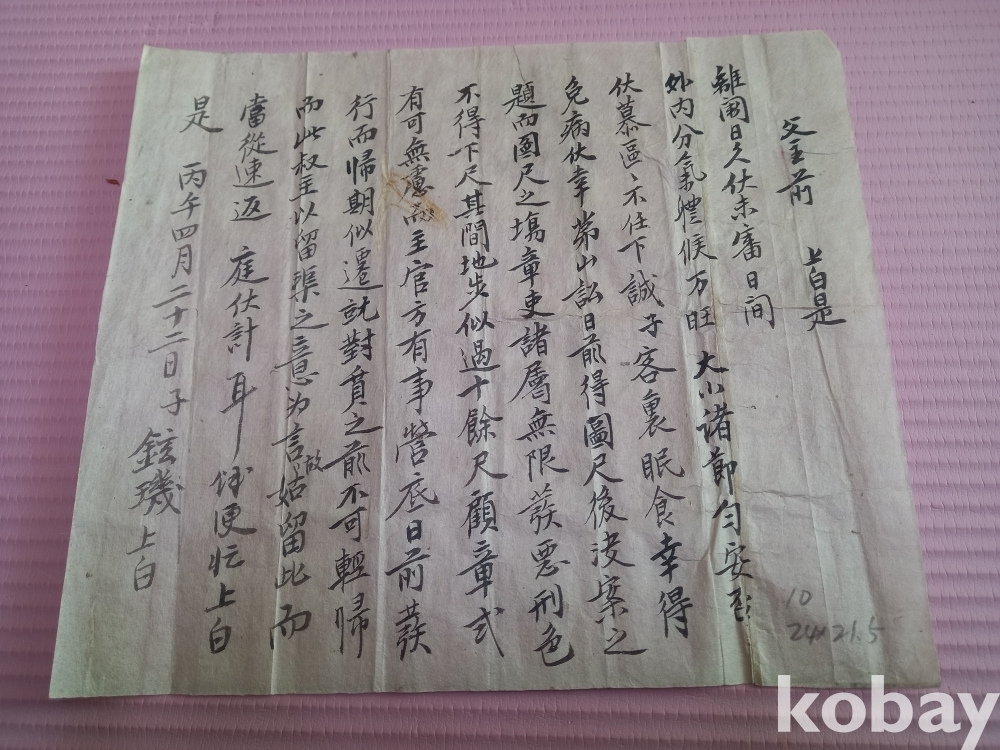 父主前 上白是
離闈日久伏未審日間
外内分氣體候万旺 大小諸節匀安
伏慕區〻不任下誠子客裏眠食幸得
免病伏幸第山訟日前得圖尺後決案之
題而圖尺之場章吏諸屬無限發惡刑色
不得下尺其間地步似過十餘尺顧章式
有可無慮 主官方有事營底日前發
行而帰期似遷就對質之前不可輕帰
而此叔主以留渠之意为言故姑留此而
當從速返 庭伏計耳 便忙上白
是 丙午四月二十二日子 鉉璣上白
10
24×21.5
kobay